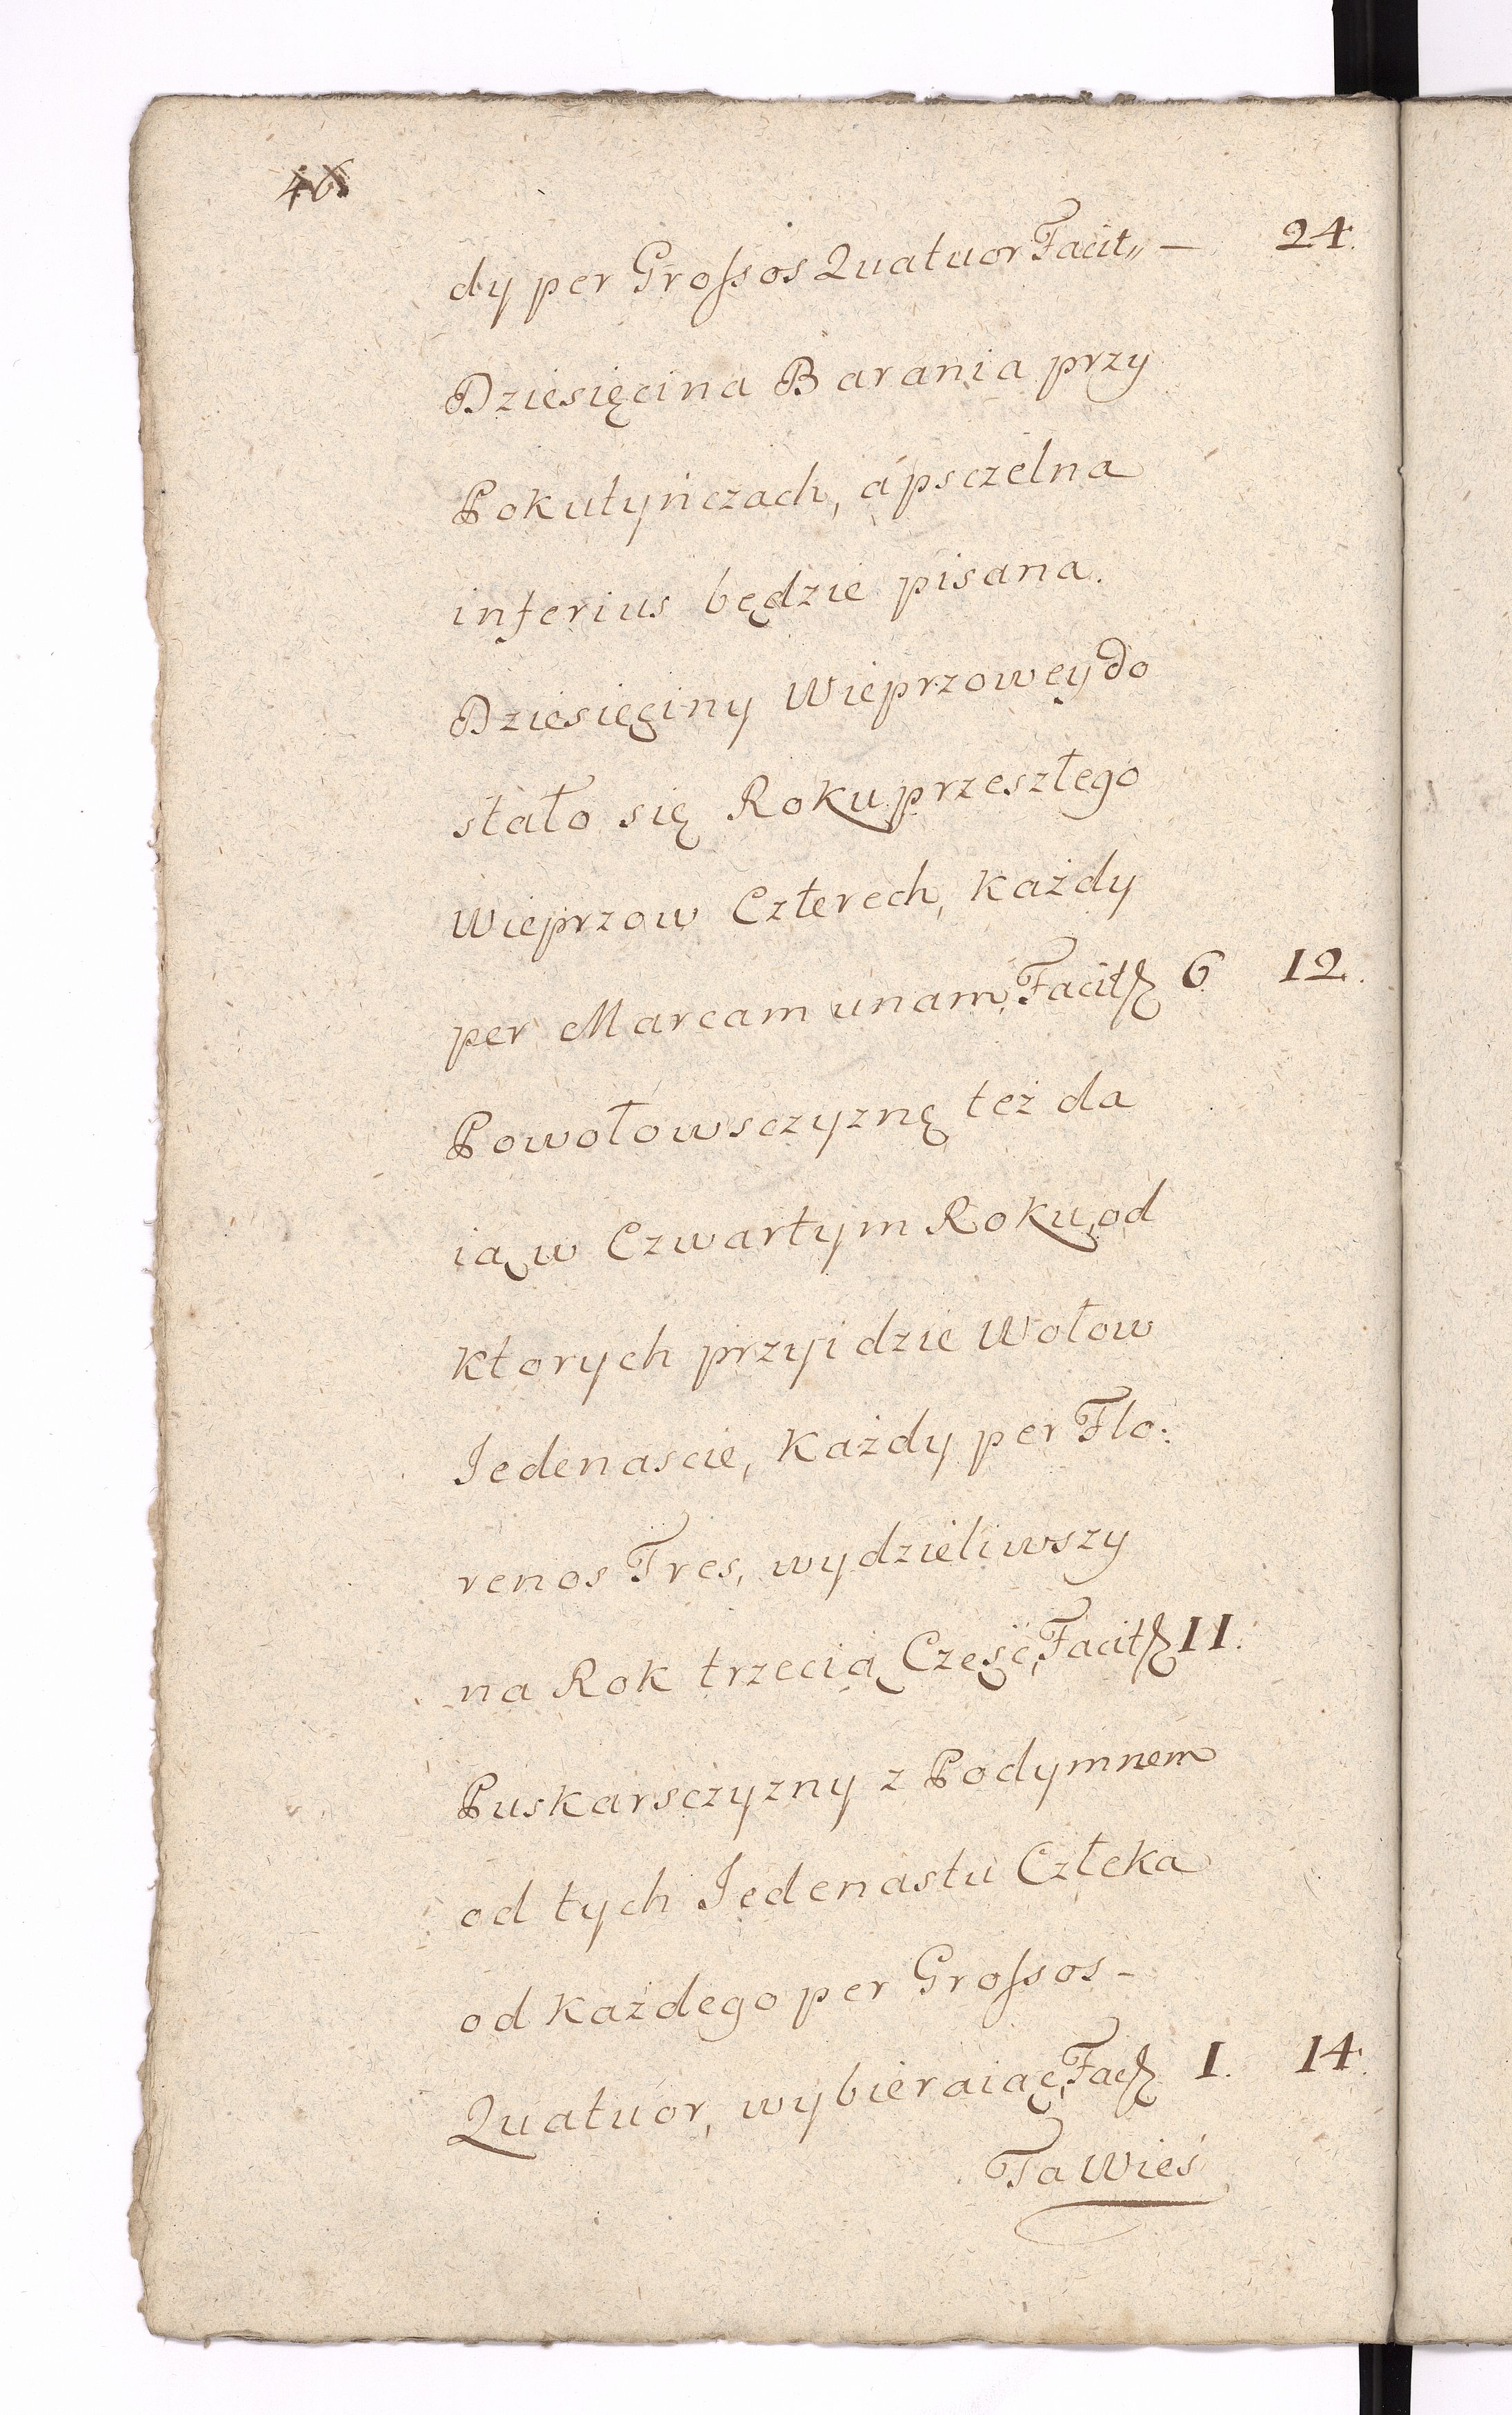 46
dy per Groſsos Quatuor Facit„ — 24.
Dziesięcina Barania przy
Pokutyńczach, á psczelna
inferius będzie pisana.
Dziesięciny Wieprzowey do
stało się Roku przeszłego
Wieprzow Czterech, każdy
per Marcam unam, Facit ƒ 6 12.
Powołowsczyznę też da
ią w Czwartym Roku, od
ktorych przyidzie Wołow
Iedenascie, każdy per Flo:
renos Tres, wydzieliwszy
na Rok trzecią Częsć, Facit ƒ II.
Puskarsczyzny z Podymnem
od tych Iedenastu Człeka
od każdego per Groſsos –
Quatuor, wybieraiąc, Fac ƒ I. 14.
Ta Wieś